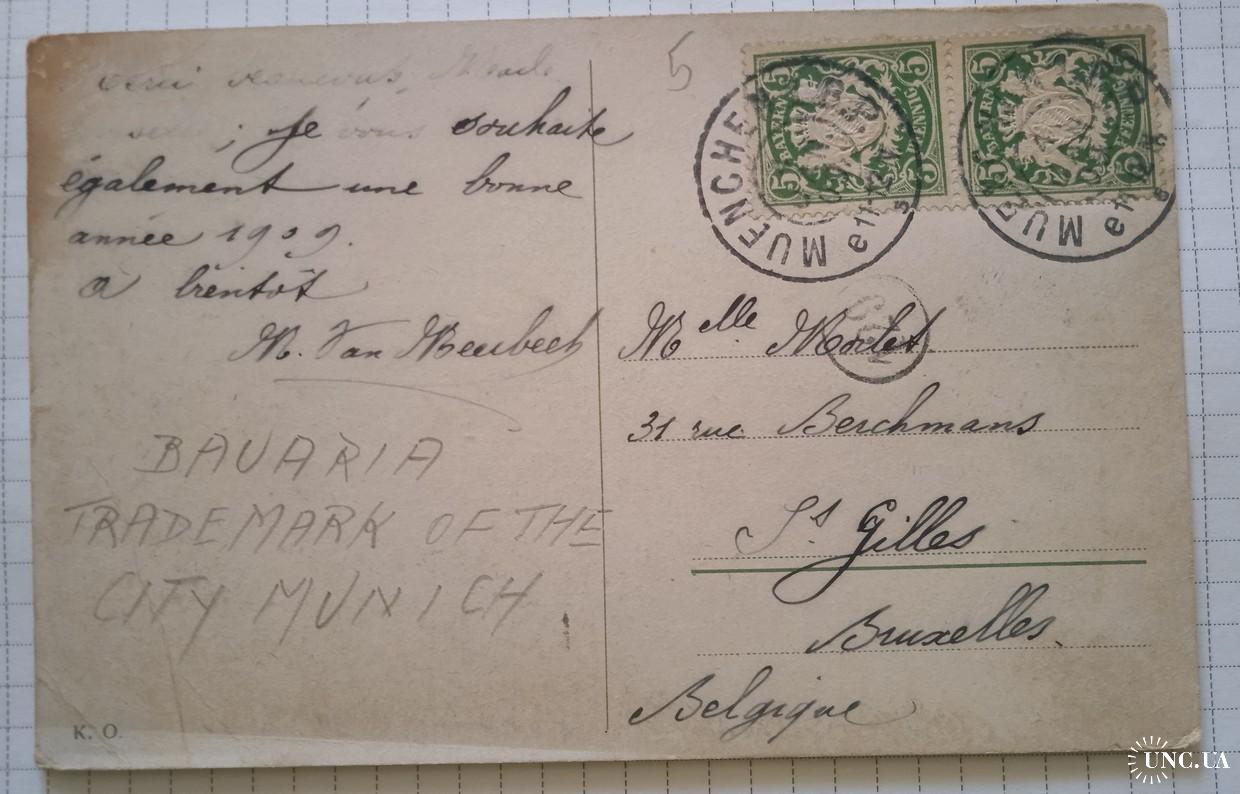 je vous souhaite
également une bonne
année 1909.
à bientôt
BAVARIA
TRADEMARK OF THE
CITY MUNICH
K. O.
5
5 BAYERN 5 PFENNIG 5
5 BAYERN 5 PFENNIG 5
MUENCHEN
MUENCHEN
Melle Morlet
31 rue Berchmans
St Gilles
Bruxelles
Belgique
UNC.UA